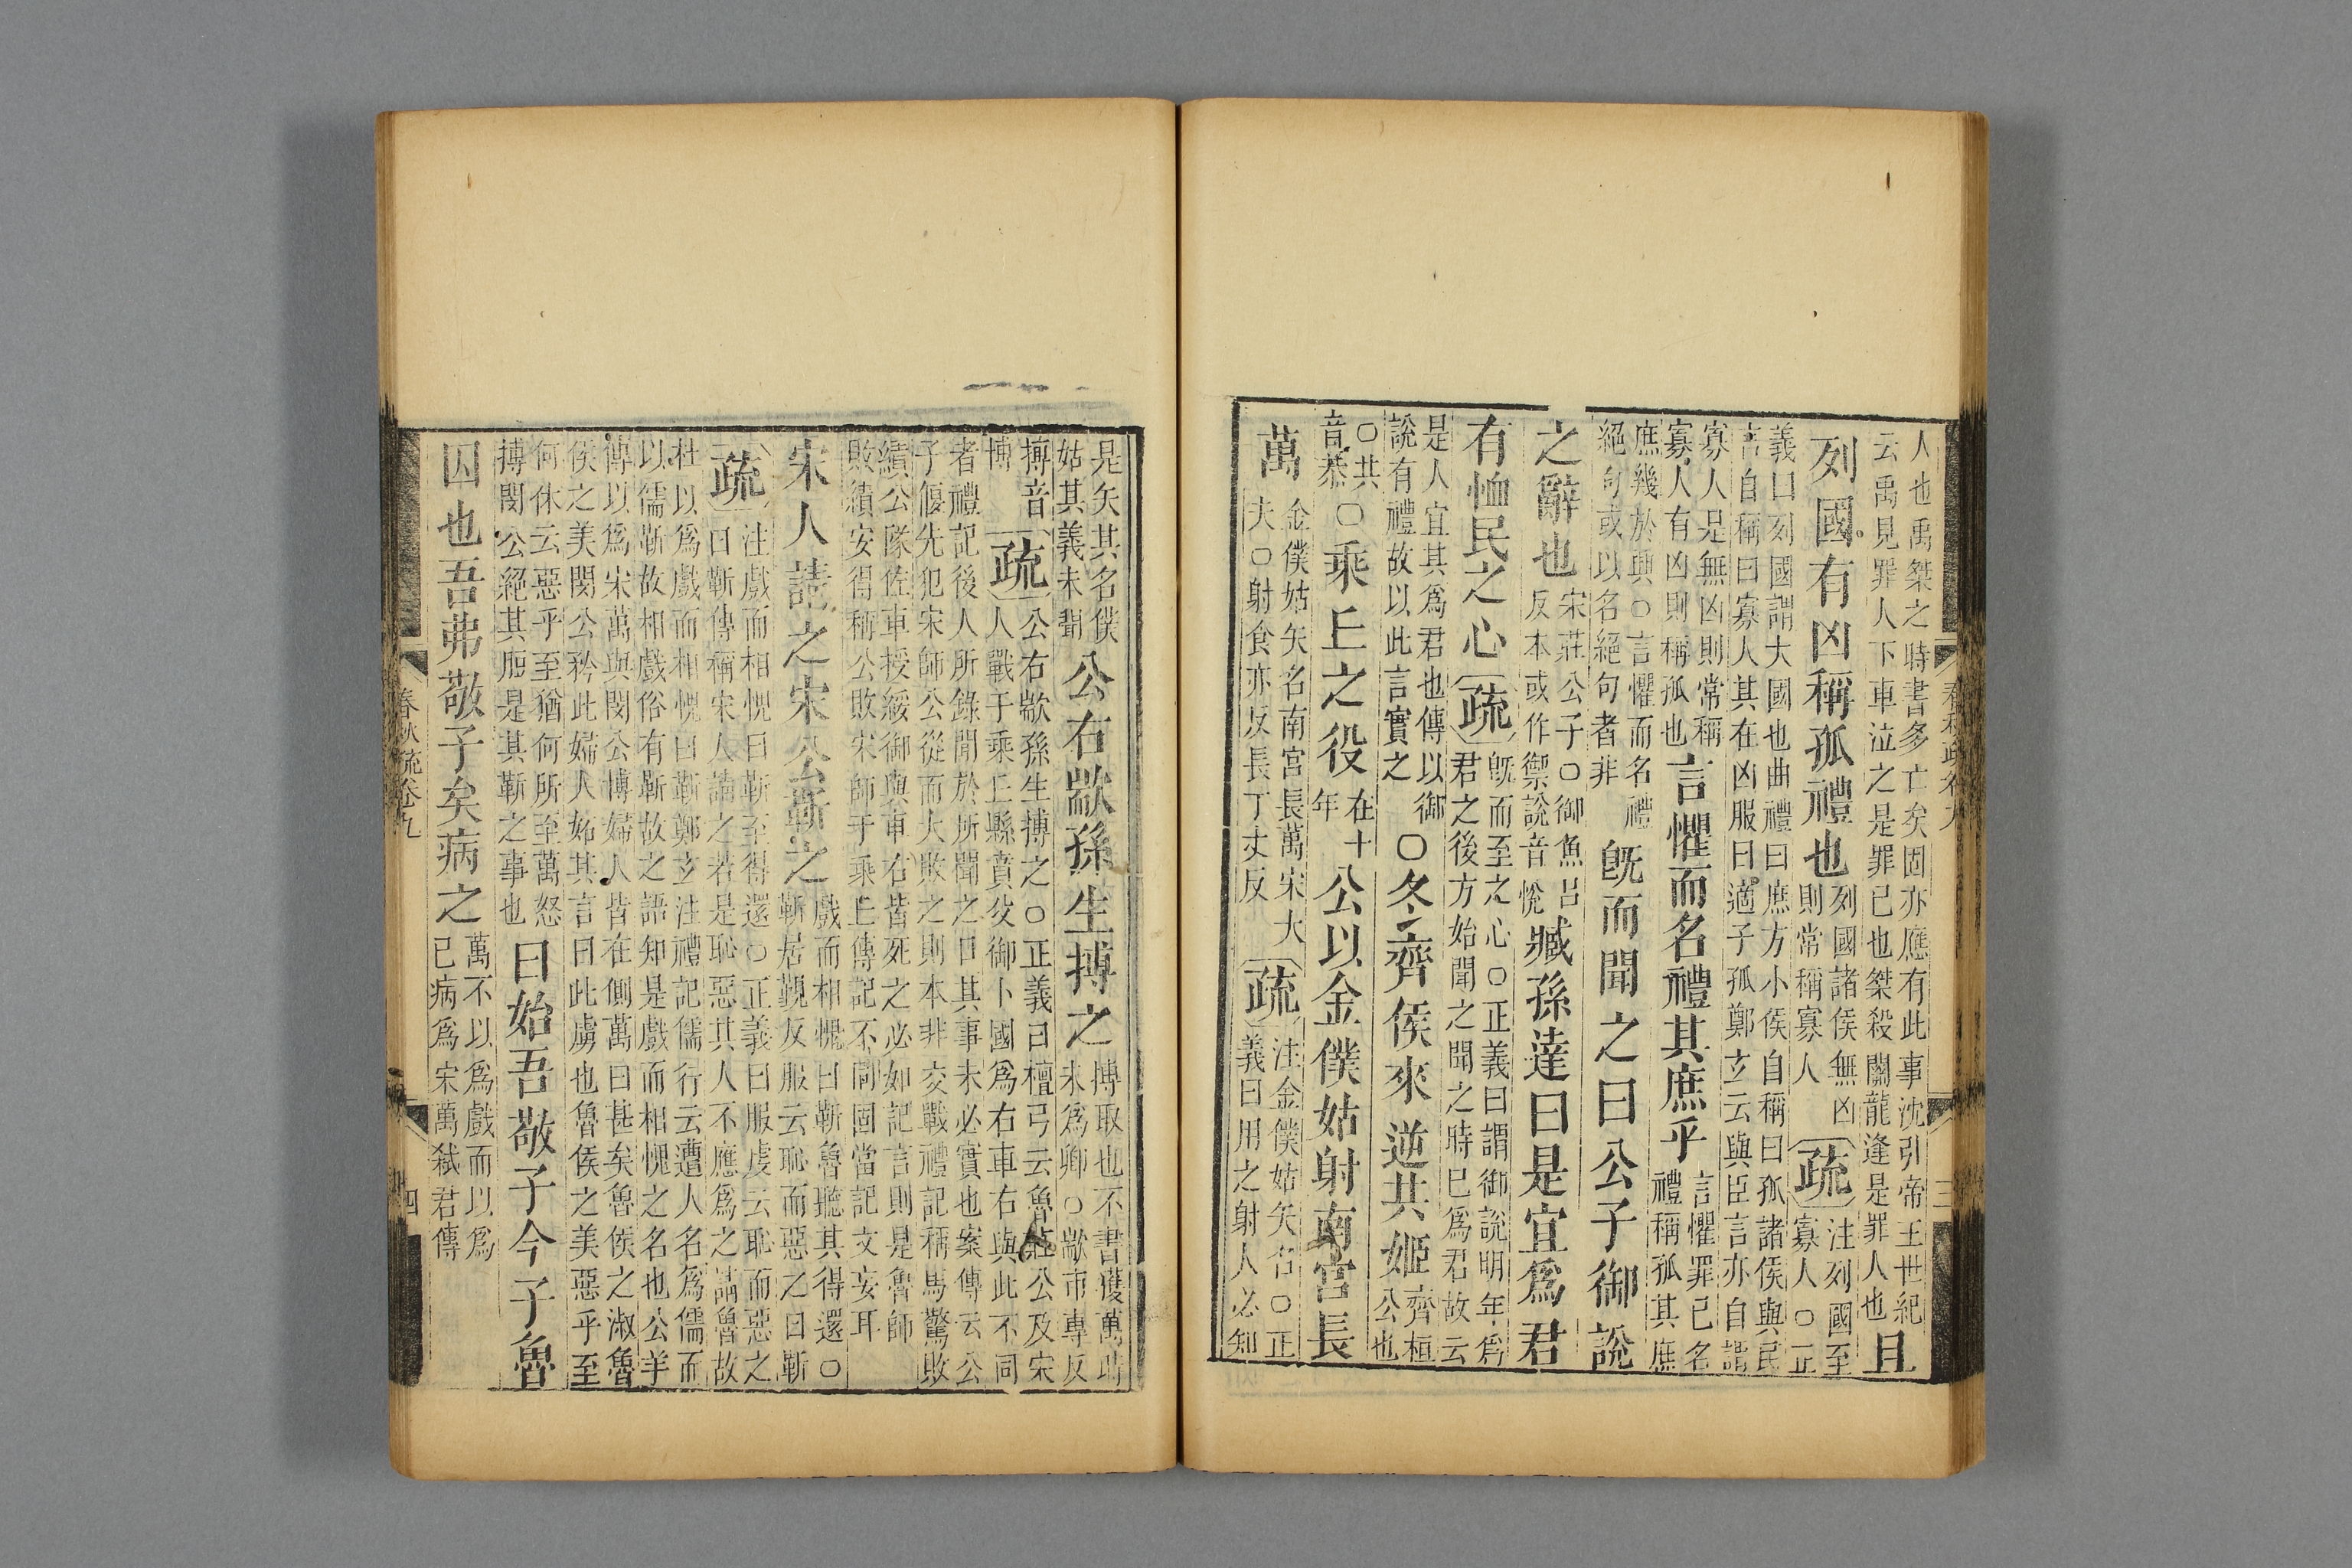 人也禹桀之時書多亡矣固亦應有此事沈引帝王世紀
云禹見罪人下車泣之是罪已也桀殺關龍逢是罪人也
且
列國有凶稱孤禮也
列國諸侯無凶
則常稱寡人
疏
注列國至
寡人○正
義曰列國謂大國也曲禮曰庶方小侯自稱曰孤諸侯與民
言自稱曰寡人其在凶服曰適子孤鄭玄云與臣言亦自謂
寡人是無凶則常稱
寡人有凶則稱孤也
言懼而名禮其庶乎
言懼罪已名
禮稱孤其庶
庶幾於興○言懼而名禮
絕句或以名絕句者非
旣而聞之曰公子御說
之辭也
宋莊公子○御魚呂
反本或作禦說音悅
臧孫達曰是宜爲君
有恤民之心
疏
旣而至之心○正義曰謂御說明年爲
君之後方始聞之聞之時已爲君故云
是人宜其爲君也傳以御
說有禮故以此言實之
○冬齊侯來逆共姬
齊桓
公也
○共
音恭
○乘丘之役
在十
年
公以金僕姑射南宮長
萬
金僕姑矢名南宮長萬宋大
夫○射食亦反長丁丈反
疏
注金僕姑矢名○正
義曰用之射人必知
春秋疏卷九
三
是矢其名僕
姑其義未聞
公右歂孫生搏之
搏取也不書獲萬時
未爲卿○歂市專反
搏音
博
疏
公右歂孫生搏之○正義曰檀弓云魯莊公及宋
人戰于乘丘縣賁父御卜國爲右車右與此不同
者禮記後人所錄聞於所聞之口其事未必實也案傳云公
子偃先犯宋師公從而大敗之則本非交戰禮記稱馬驚敗
績公隊佐車授綏御與車右皆死之必如記言則是魯師
敗績安得稱公敗宋師于乘丘傳記不同固當記文妄耳
宋人請之宋公靳之
戲而相愧曰靳魯聽其得還○
靳居覲反服云恥而惡之曰靳
疏
注戲而相愧曰靳至得還○正義曰服虔云恥而惡之
曰靳傳稱宋人請之若是恥惡其人不應爲之請魯故
杜以爲戲而相愧曰靳鄭玄注禮記儒行云遭人名爲儒而
以儒靳故相戲俗有靳故之語知是戲而相愧之名也公羊
傳以爲宋萬與閔公博婦人皆在側萬曰甚矣魯侯之淑魯
侯之美閔公矜此婦人妬其言曰此虜也魯侯之美惡乎至
何休云惡乎至猶何所至萬怒
搏閔公絕其脰是其靳之事也
曰始吾敬子今子魯
囚也吾弗敬子矣病之
萬不以爲戲而以爲
已病爲宋萬弑君傳
春秋疏卷九
四